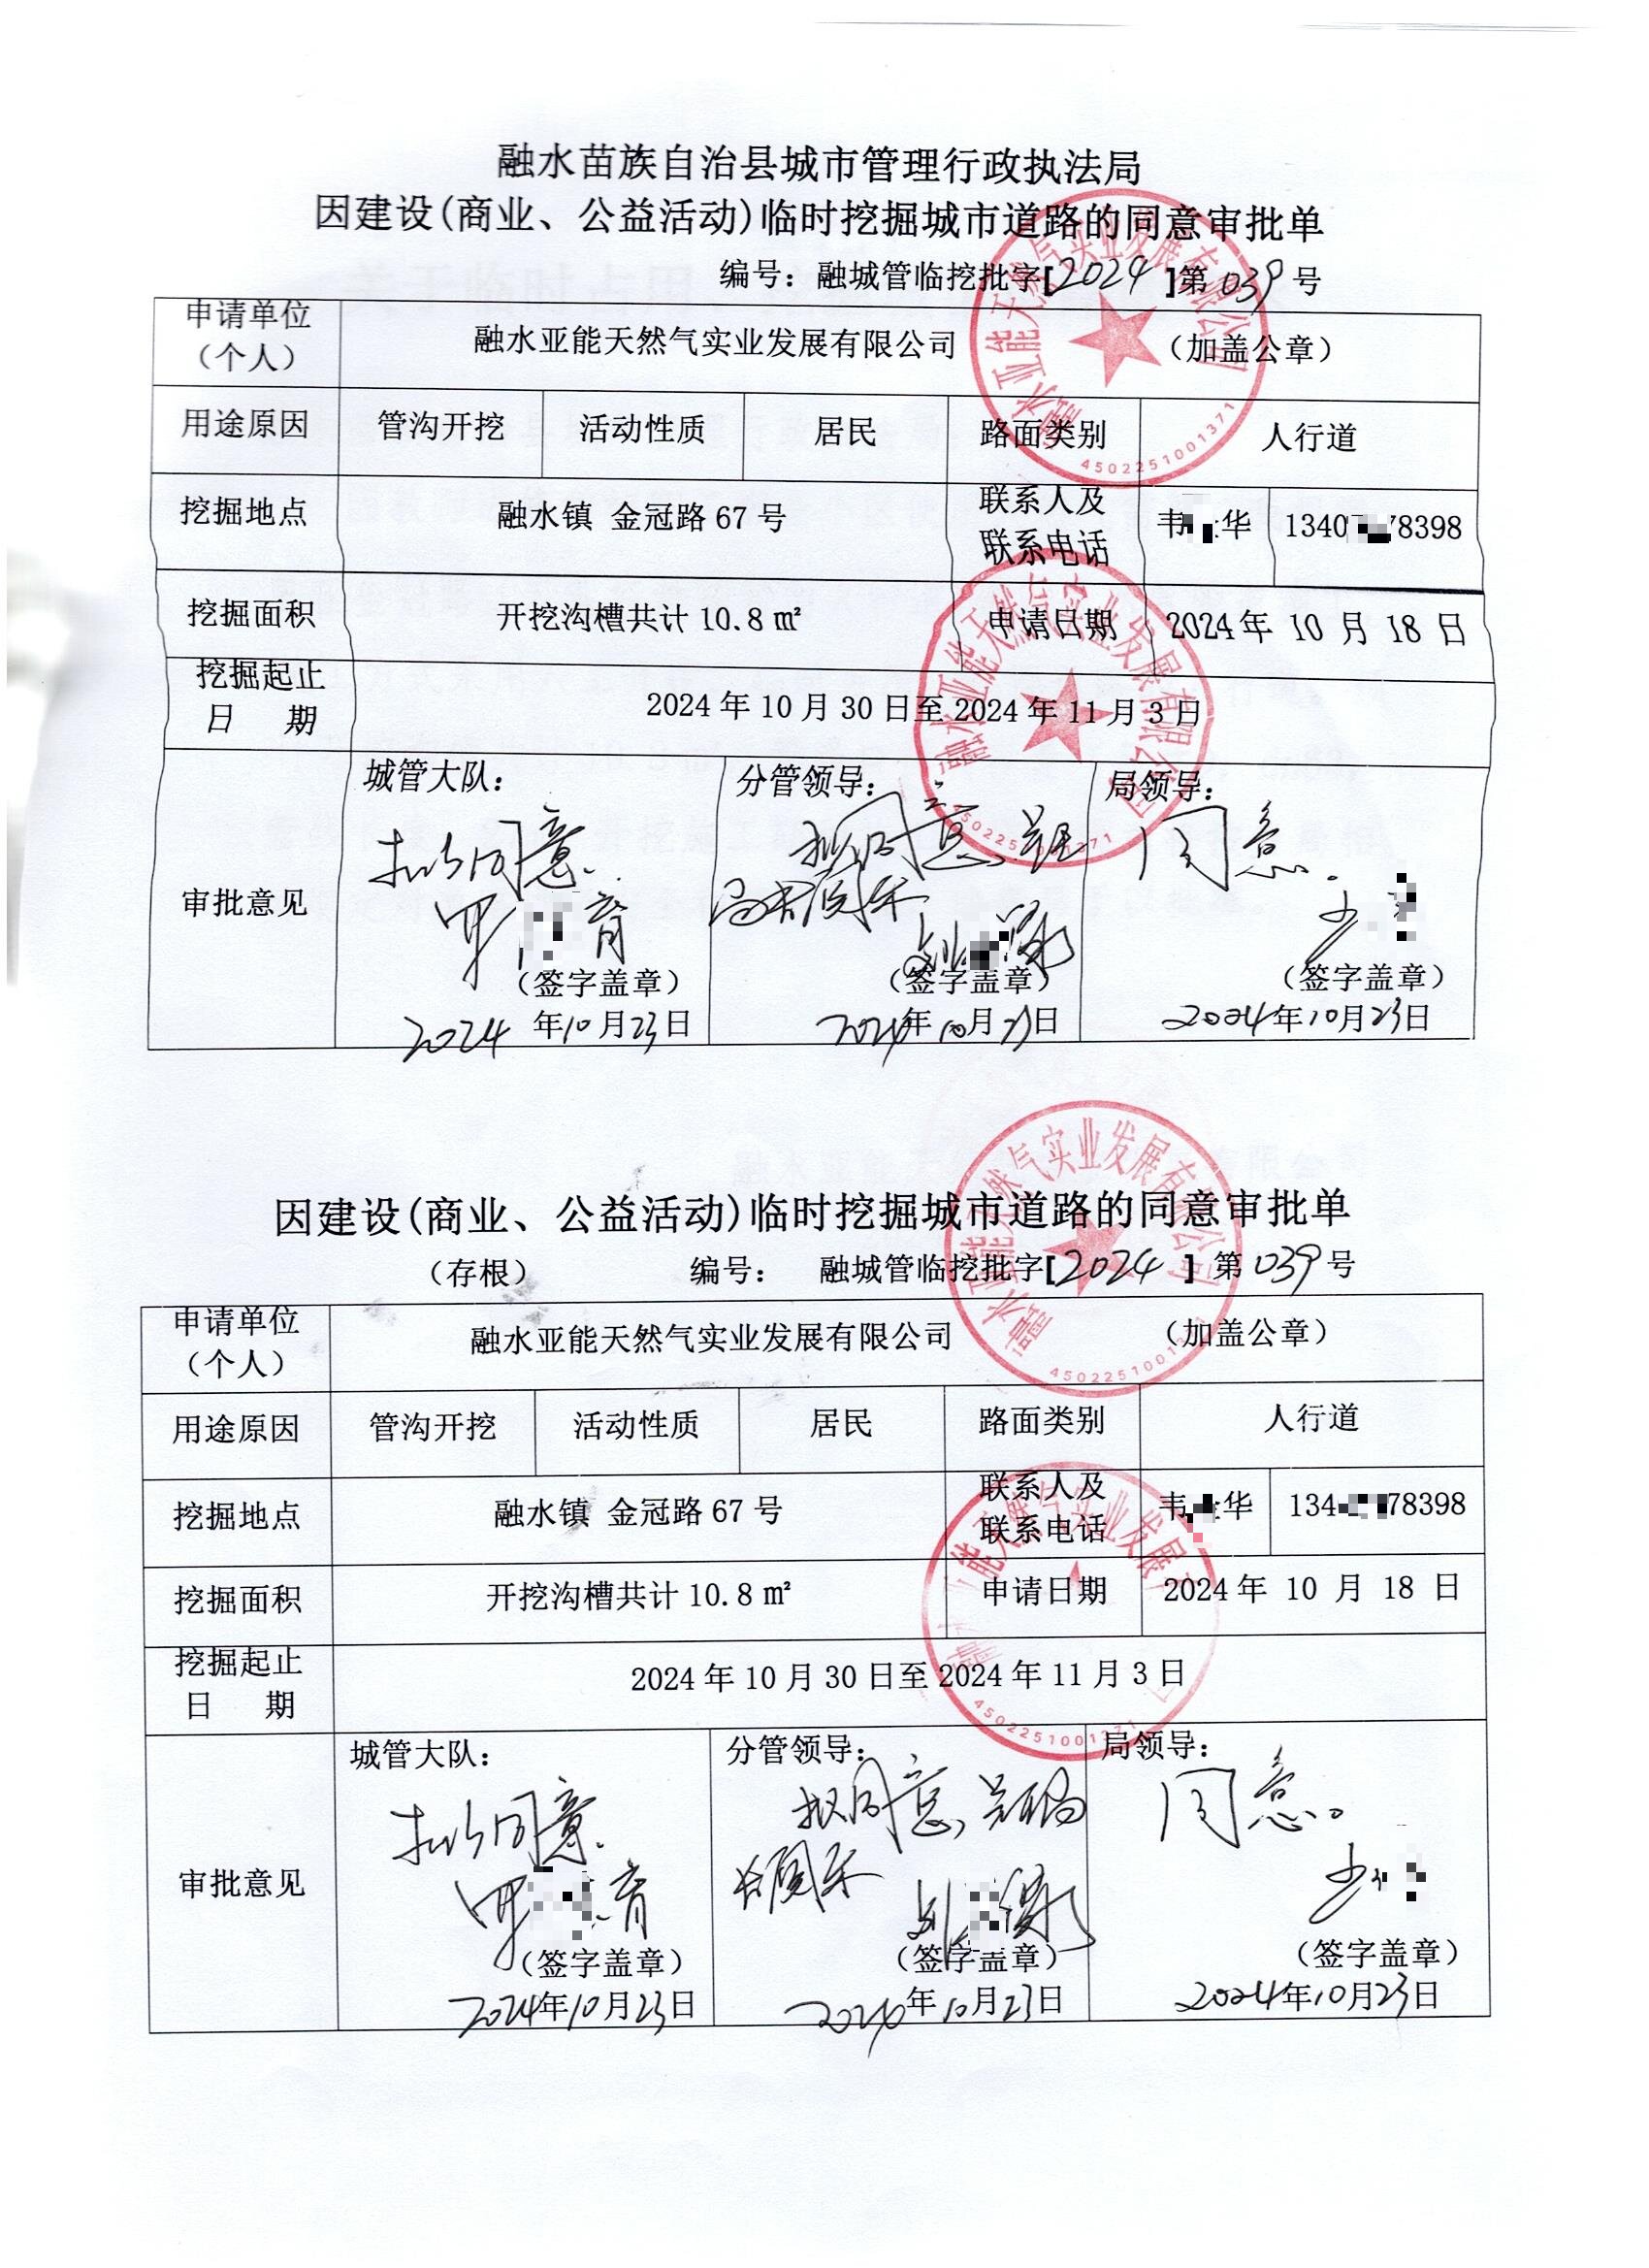 融水苗族自治县城市管理行政执法局
因建设(商业、公益活动)临时挖掘城市道路的同意审批单
编号：融城管临挖批字[2024]第039号
申请单位（个人） 融水亚能天然气实业发展有限公司 （加盖公章）
用途原因 管沟开挖 活动性质 居民 路面类别 人行道
挖掘地点 融水镇 金冠路67号 联系人及联系电话 韦 华 1340 78398
挖掘面积 开挖沟槽共计10.8㎡ 申请日期 2024年 10 月 18 日
挖掘起止日 期 2024年10月30日至2024年11月3日
审批意见
城管大队：
拟同意.
（签字盖章）
2024年10月23日
分管领导：
拟同意
（签字盖章）
2024年10月23日
局领导：
同意。
（签字盖章）
2024年10月23日
融水亚能天然气实业发展有限公司
4502251001371
融水亚能天然气实业发展有限公司
4502251001371
因建设(商业、公益活动)临时挖掘城市道路的同意审批单
（存根） 编号： 融城管临挖批字[2024]第039号
申请单位（个人） 融水亚能天然气实业发展有限公司 （加盖公章）
用途原因 管沟开挖 活动性质 居民 路面类别 人行道
挖掘地点 融水镇 金冠路67号 联系人及联系电话 韦 华 134 78398
挖掘面积 开挖沟槽共计10.8㎡ 申请日期 2024年 10 月 18 日
挖掘起止日 期 2024年10月30日至2024年11月3日
审批意见
城管大队：
拟同意.
（签字盖章）
2024年10月23日
分管领导：
拟同意
（签字盖章）
2024年10月23日
局领导：
同意。
（签字盖章）
2024年10月23日
融水亚能天然气实业发展有限公司
4502251001371
能天然气实业发展
4502251001371